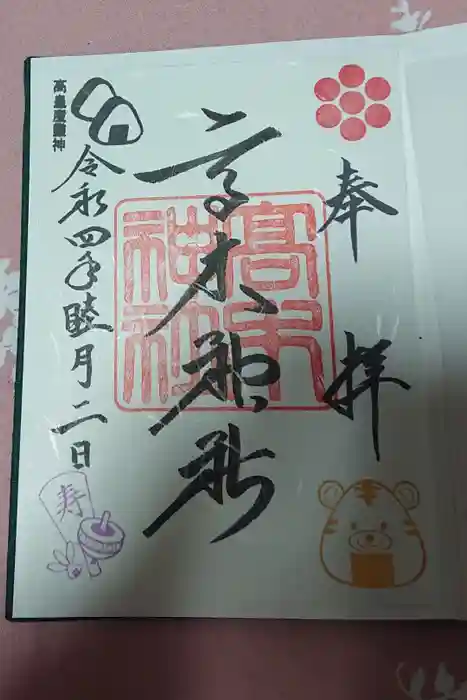 奉拝
高木神社
高木神社
高皇産霊神
令和四年睦月二日
寿